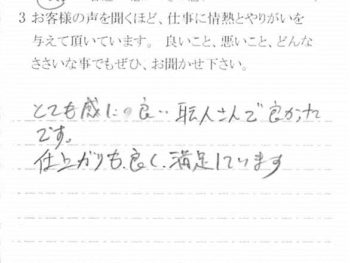 3 お客様の声を聞くほど、仕事に情熱とやりがいを
与えて頂いています。良いこと、悪いこと、どんな
ささいな事でもぜひ、お聞かせ下さい。
とても感じの良い職人さんで良かった
です。
仕上がりも良く、満足しています